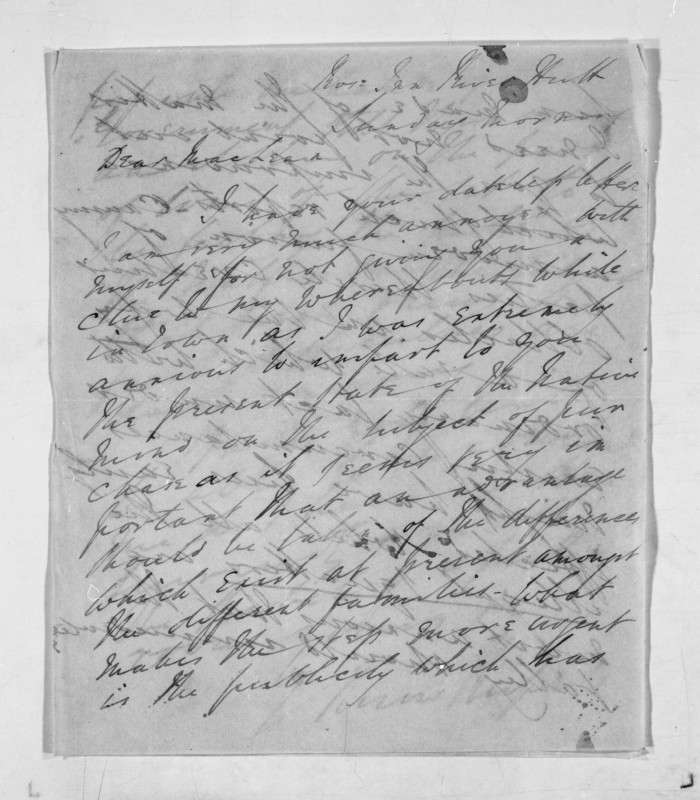 River Hutt
Sunday Morning
Dear MacLean
I have your dateless letter
I am very much annoyed with
myself for not giving you a
clue to my whereabouts while
in Town as I was extremely
anxious to impart to you
the present state of the Native
mind on the subject of pur
chase as it seems very im
portant that an advantage
should be of the differences
which exist at present amongst
the different families - What
makes the step more urgent
is the publicity which has